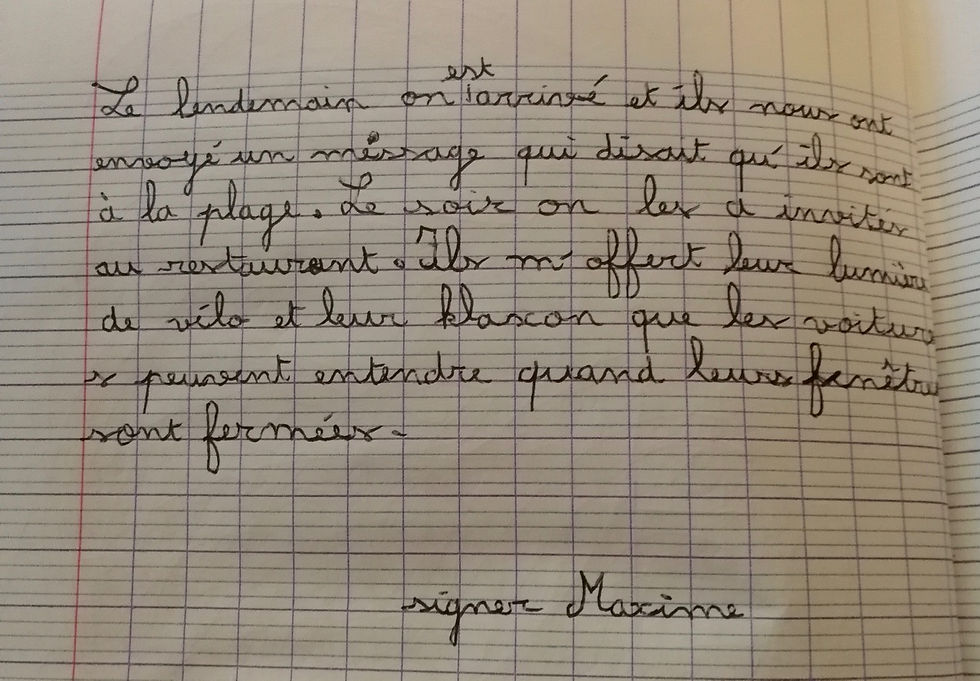 est
Le lendemain on arrivé et ils nous ont
envoyé un méssage qui disait qu'ils sont
à la plage. Le soir on les a invités
au restaurant. Ils m'offert leur lumière
de vélo et leur klascon que les voitur
s peuvent entendre quand leurs fenêtre
sont fermées.
signer Maxime